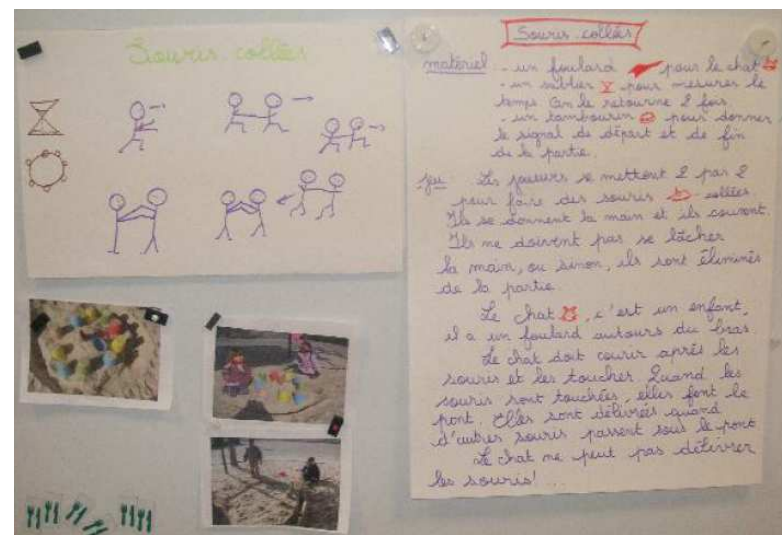 Souris collées
Souris collées
matériel - un foulard pour le chat
- un sablier pour mesurer le
temps (on le retourne 2 fois
- un tambourin pour donner
le signal de départ et de fin
de la partie.
jeu Les joueurs se mettent 2 par 2
pour faire des souris collées
Ils se donnent la main et ils courent.
Ils ne doivent pas se lâcher
la main, ou sinon, ils sont éliminés
de la partie.
Le chat, c'est un enfant,
il a un foulard autours du bras.
Le chat doit courir après les
souris et les toucher. Quand les
souris sont touchées, elles font le
pont. Elles sont délivrées quand
d'autres souris passent sous le pont
Le chat ne peut pas délivrer
les souris! ...